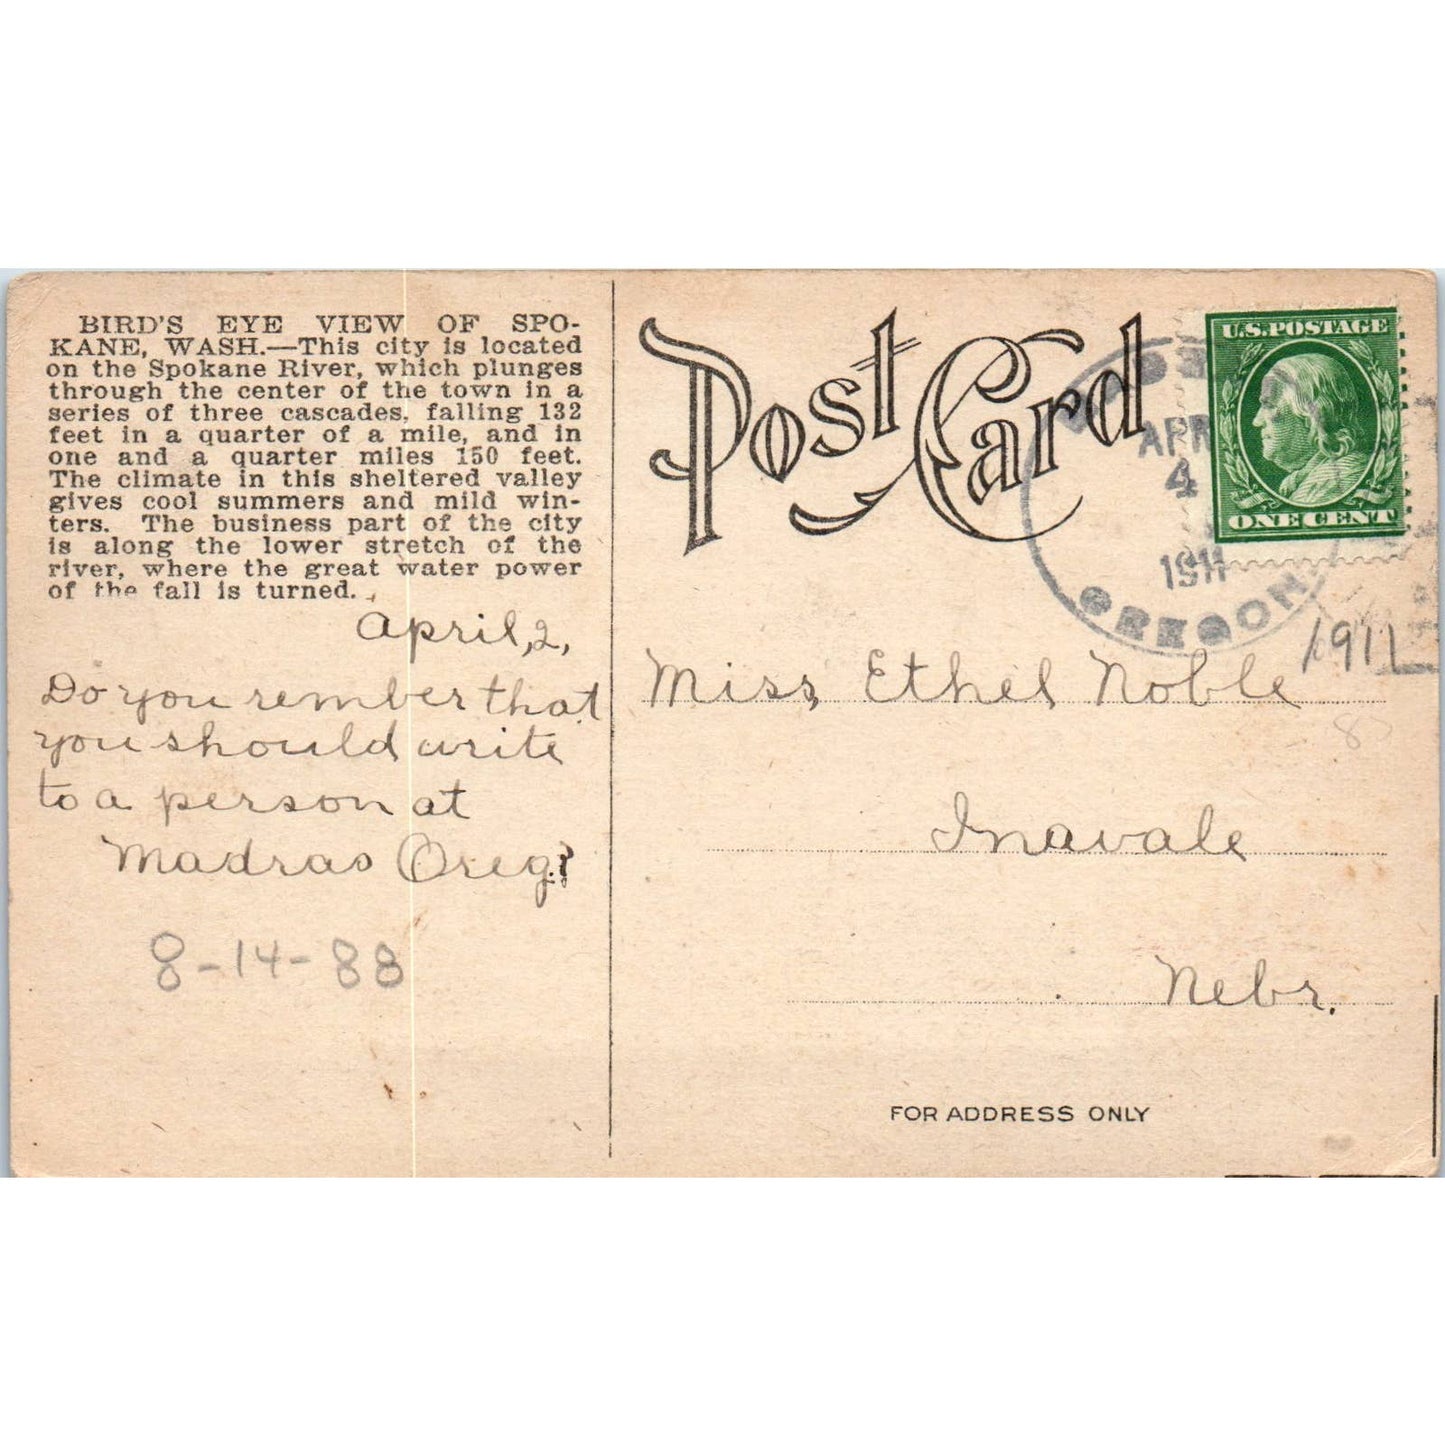 BIRD'S EYE VIEW OF SPO-
KANE, WASH.—This city is located
on the Spokane River, which plunges
through the center of the town in a
series of three cascades, falling 132
feet in a quarter of a mile, and in
one and a quarter miles 150 feet.
The climate in this sheltered valley
gives cool summers and mild win-
ters. The business part of the city
is along the lower stretch of the
river, where the great water power
of the fall is turned.
April, 2,
Do you rember that
you should write
to a person at
Madras Oreg?
8-14-88
Post Card
U.S. POSTAGE
ONE CENT
APR
4
1911
OREGON
1911
Miss, Ethel Noble
Inavale
Nebr.
FOR ADDRESS ONLY